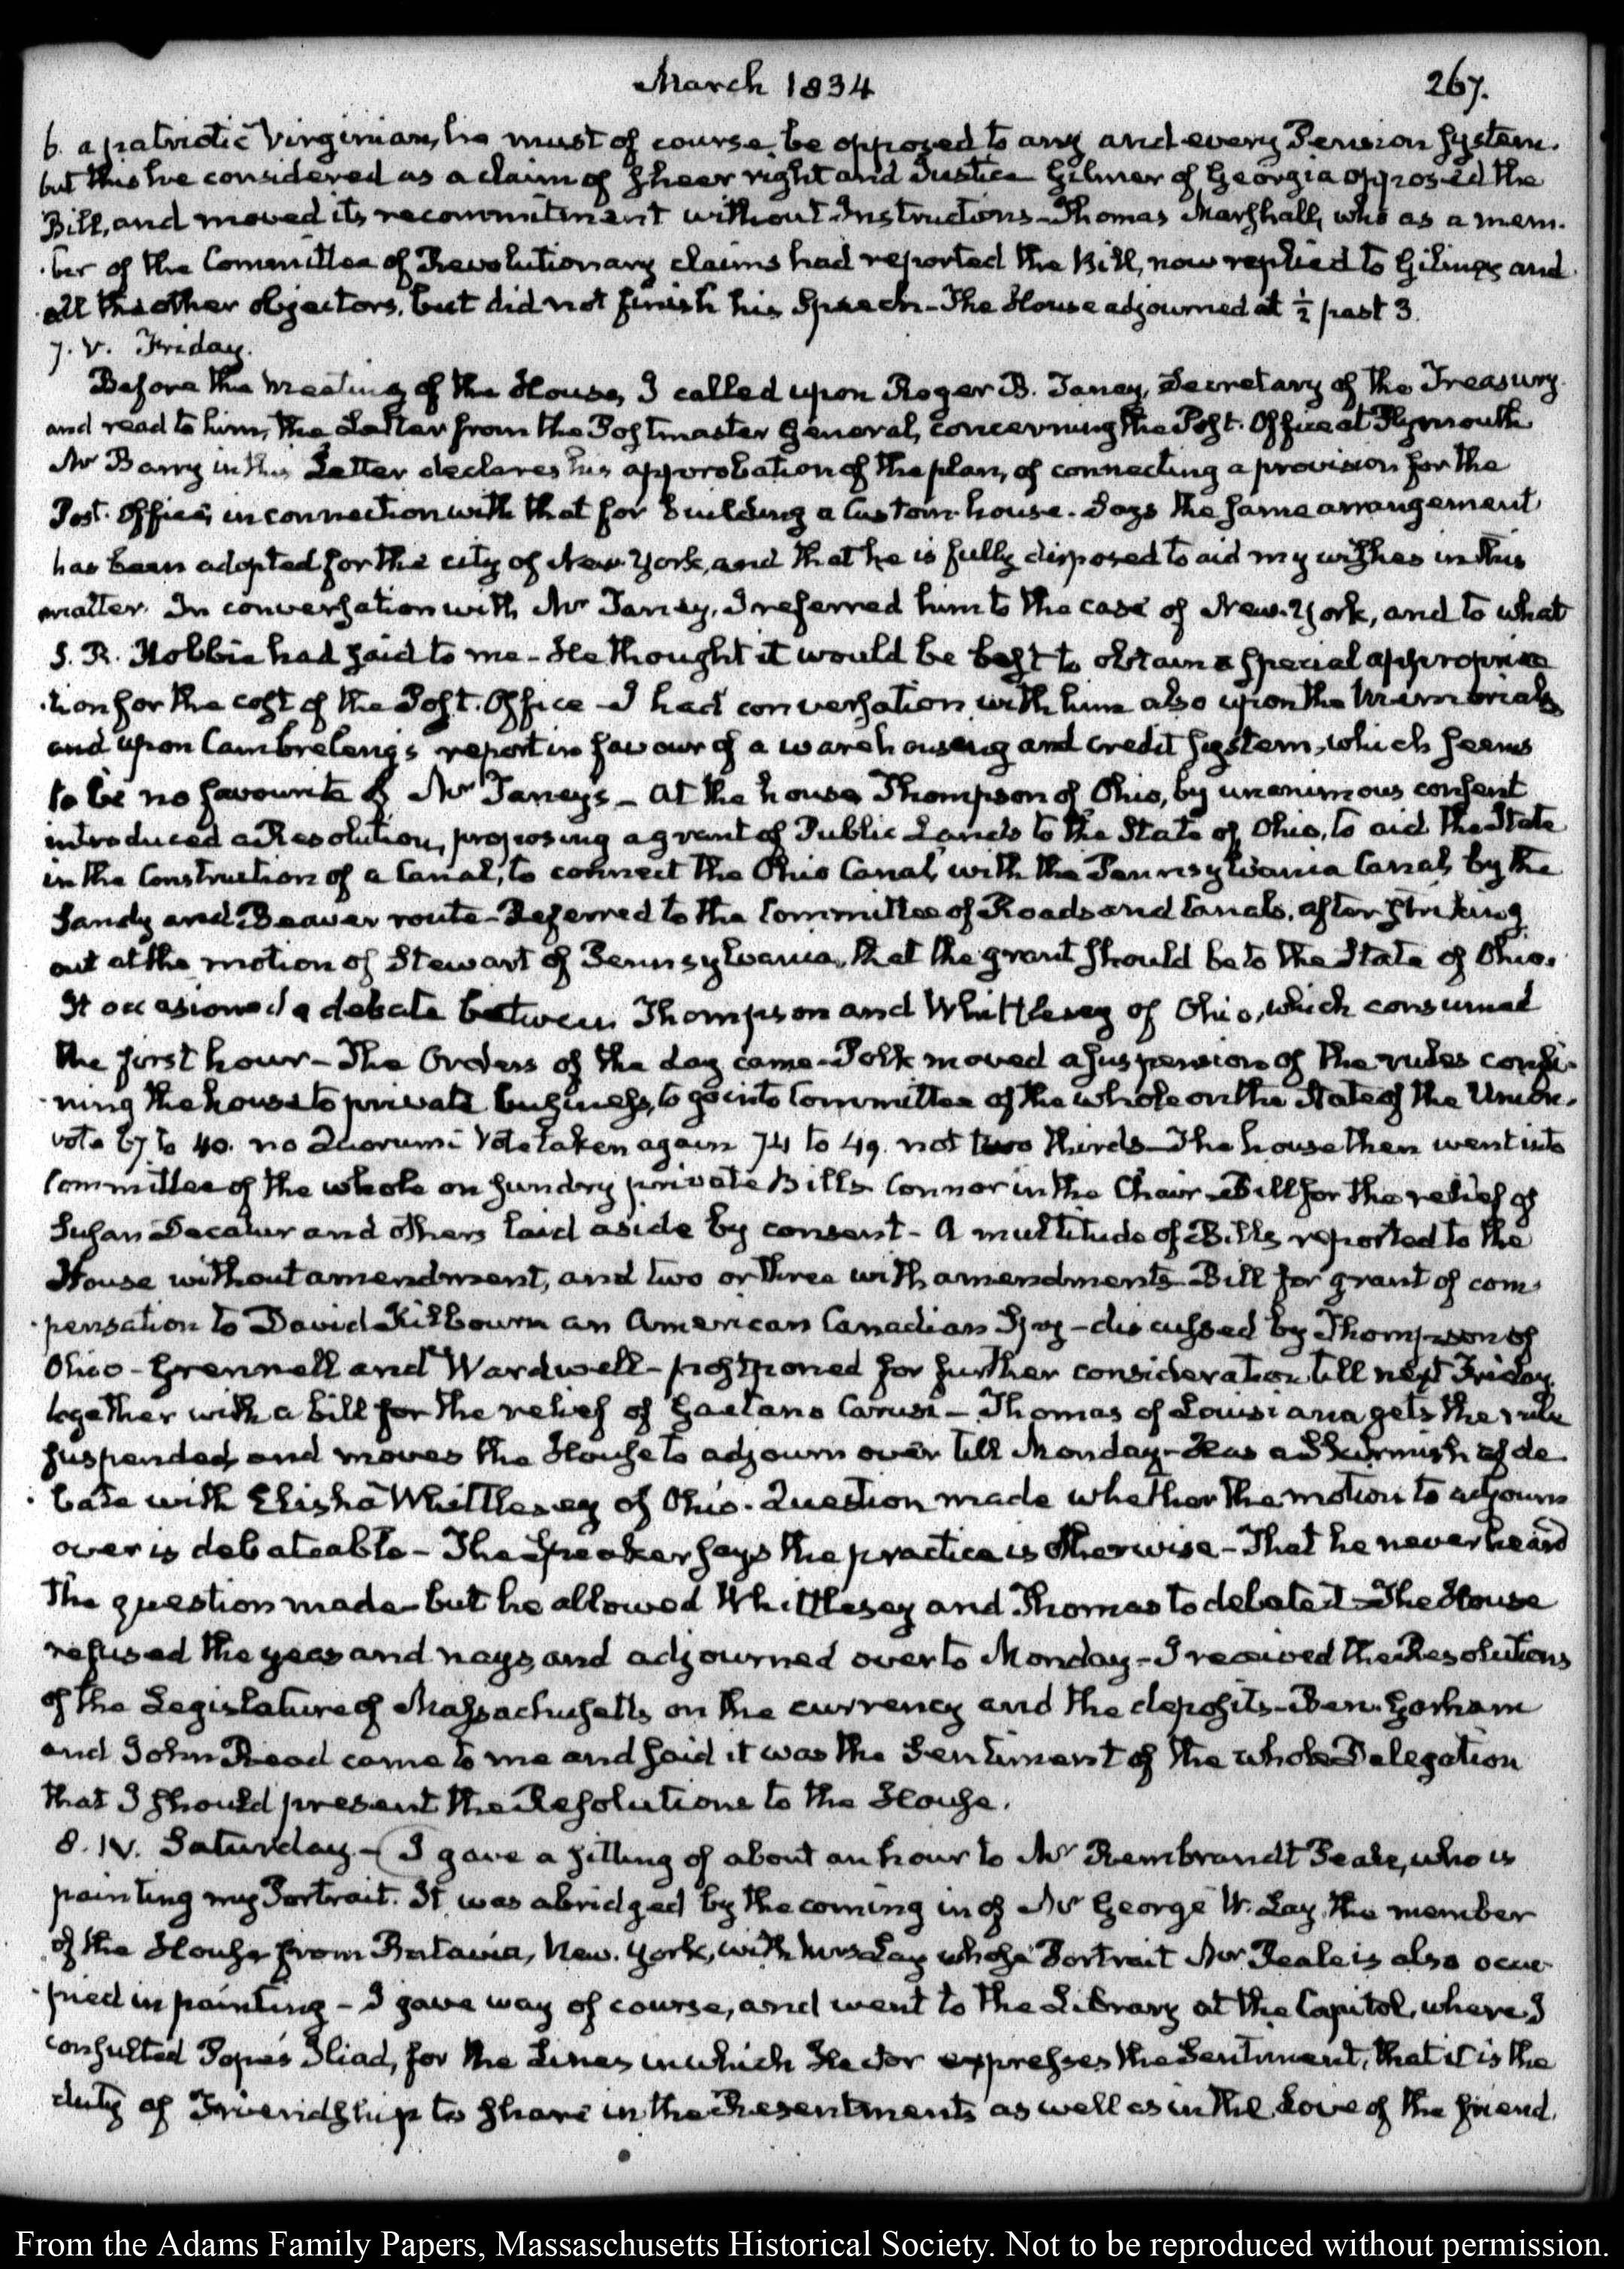 March 1834
267.
6. a patriotic Virginian, he must of course, be opposed to any and every Pension System.
but this he considered as a claim of sheer right and Justice Gilmer of Georgia opposed the
Bill, and moved its recommitment without Instructions - Thomas Marshall, who as a mem-
-ber of the Committee of Revolutionary claims had reported the Bill, now replied to Gilmer and
all the other objectors, but did not finish his Speech - The House adjourned at ½ past 3.
7. V. Friday.
Before the meeting of the House, I called upon Roger B. Taney, Secretary of the Treasury
and read to him, the Letter from the Postmaster General, concerning the Post-Office at Plymouth
Mr Barry in this Letter declares his approbation of the plan, of connecting a provision for the
Post-Office, in connection with that for building a Custom-house. Says the same arrangement
has been adopted for the city of New-York, and that he is fully disposed to aid my wishes in this
matter. In conversation with Mr Taney, I referred him to the case of New-York, and to what
S. R. Hobbie had said to me - He thought it would be best to obtain a special appropria
-tion for the cost of the Post-Office - I had conversation with him also upon the Memorials
and upon Cambreleng's report in favour of a warehousing and credit system, which seems
to be no favourite of Mr Taney's - At the house Thompson of Ohio, by unanimous consent
introduced a Resolution, proposing a grant of Public Lands to the State of Ohio, to aid the State
in the Construction of a Canal, to connect the Ohio Canal, with the Pennsylvania Canal, by the
Sandy and Beaver route - Referred to the Committee of Roads and Canals, after striking
out at the motion of Stewart of Pennsylvania, that the grant should be to the State of Ohio.
It occasioned a debate between Thompson and Whittlesey of Ohio, which consumed
the first hour - The Orders of the day came - Polk moved a suspension of the rules confi-
-ning the house to private business, to go into Committee of the whole on the State of the Union.
vote 67 to 40. no Quorum. Vote taken again 74 to 49. not two thirds - The house then went into
Committee of the whole on sundry private Bills Connor in the Chair - Bill for the relief of
Susan Decatur and others laid aside by consent - A multitude of Bills reported to the
House without amendment, and two or three with amendments - Bill for grant of com-
-pensation to David Kilbourn an American Canadian Spy - discussed by Thompson of
Ohio - Grennell and Wardwell - postponed for further consideration till next Friday,
together with a bill for the relief of Gaetano Carusi - Thomas of Louisiana gets the rule
suspended, and moves the House to adjourn over till Monday - Has a Skirmish of de-
-bate with Elisha Whittlesey of Ohio. Question made whether the motion to adjourn
over is debateable - The Speaker says the practice is otherwise - That he never heard
the question made - but he allowed Whittlesey and Thomas to debate it - The House
refused the yeas and nays and adjourned over to Monday - I received the Resolutions
of the Legislature of Massachusetts on the currency and the deposits - Ben. Gorham
and John Reed came to me and said it was the Sentiment of the whole Delegation
that I should present the Resolutions to the House.
8. IV. Saturday - (I gave a sitting of about an hour to Mr Rembrandt Peale, who is
painting my Portrait. It was abridged by the coming in of Mr George W. Lay, the member
of the House from Batavia, New-York, with Mrs Lay whose Portrait Mr Peale is also occu-
-pied in painting - I gave way of course, and went to the Library at the Capitol, where I
consulted Pope's Iliad, for the Lines in which Hector expresses the Sentiment, that it is the
duty of Friendship to share in the Resentments as well as in the Love of the friend.
From the Adams Family Papers, Massaschusetts Historical Society. Not to be reproduced without permission.